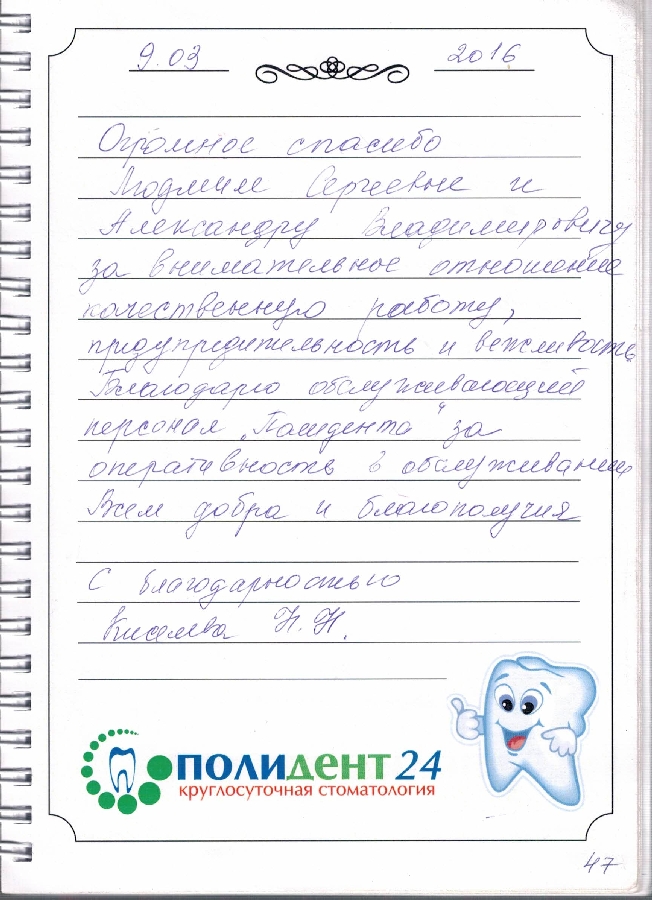 9.03 2016
Огромное спасибо
Людмиле Сергеевне и
Александру Владимировичу
за внимательное отношение
качественную работу,
предупредительность и вежливость.
Благодарю обслуживающий
персонал "Полидента" за
оперативность в обслуживании
Всем добра и благополучия
С благодарностью
Киселева Н.Н.
ПОЛИДЕНТ 24
круглосуточная стоматология
47